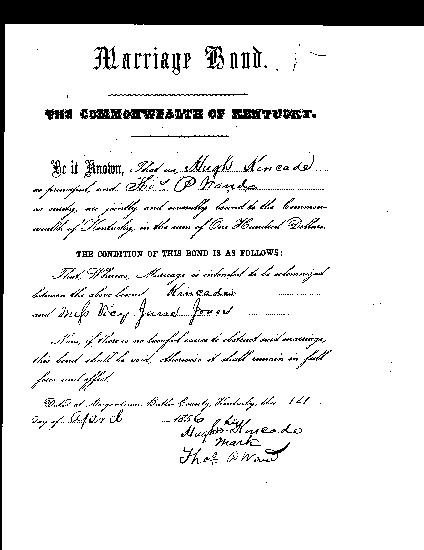 Marriage Bond.
THE COMMONWEALTH OF KENTUCKY.
Be it Known, That we Hugh Kincade
as principal, and Thos P Ward
as surety, are jointly and severally bound to the Common-
wealth of Kentucky, in the sum of One Hundred Dollars.
THE CONDITION OF THIS BOND IS AS FOLLOWS:
That, Whereas, Marriage is intended to be solemnized
between the above bound Kincade
and Miss Jane
Now, if there is no lawful cause to obstruct said marriage,
this bond shall be void, otherwise it shall remain in full
force and effect.
Dated at Morgantown, Butler County, Kentucky, this
day of April 1856
Hugh his Kincade
mark
Thos P Ward